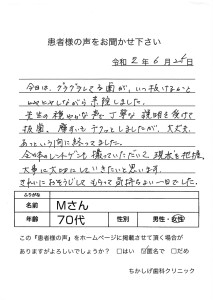 患者様の声をお聞かせ下さい
令和2年6月26日
今日は、グラグラする歯が、いつ抜けるかと
しながら来院しました。
先生の穏やかな声と丁寧な説明を受けて
抜歯。麻酔もチクッとしましたが、大丈夫。
あっという間に終ってました。
全体のレントゲンも撮っていただいて、現状を把握、
大事に大切にしていきたいと思います。
きれいにおそうじしてもらって気持ちよい一日でした。
ふりがな
名前 Mさん
年齢 70代 性別 男性・女性
この『患者様の声』をホームページに掲載させて頂く場合が
ありますがよろしいでしょうか? □はい ☑匿名で □だめ
ちかしげ歯科クリニック